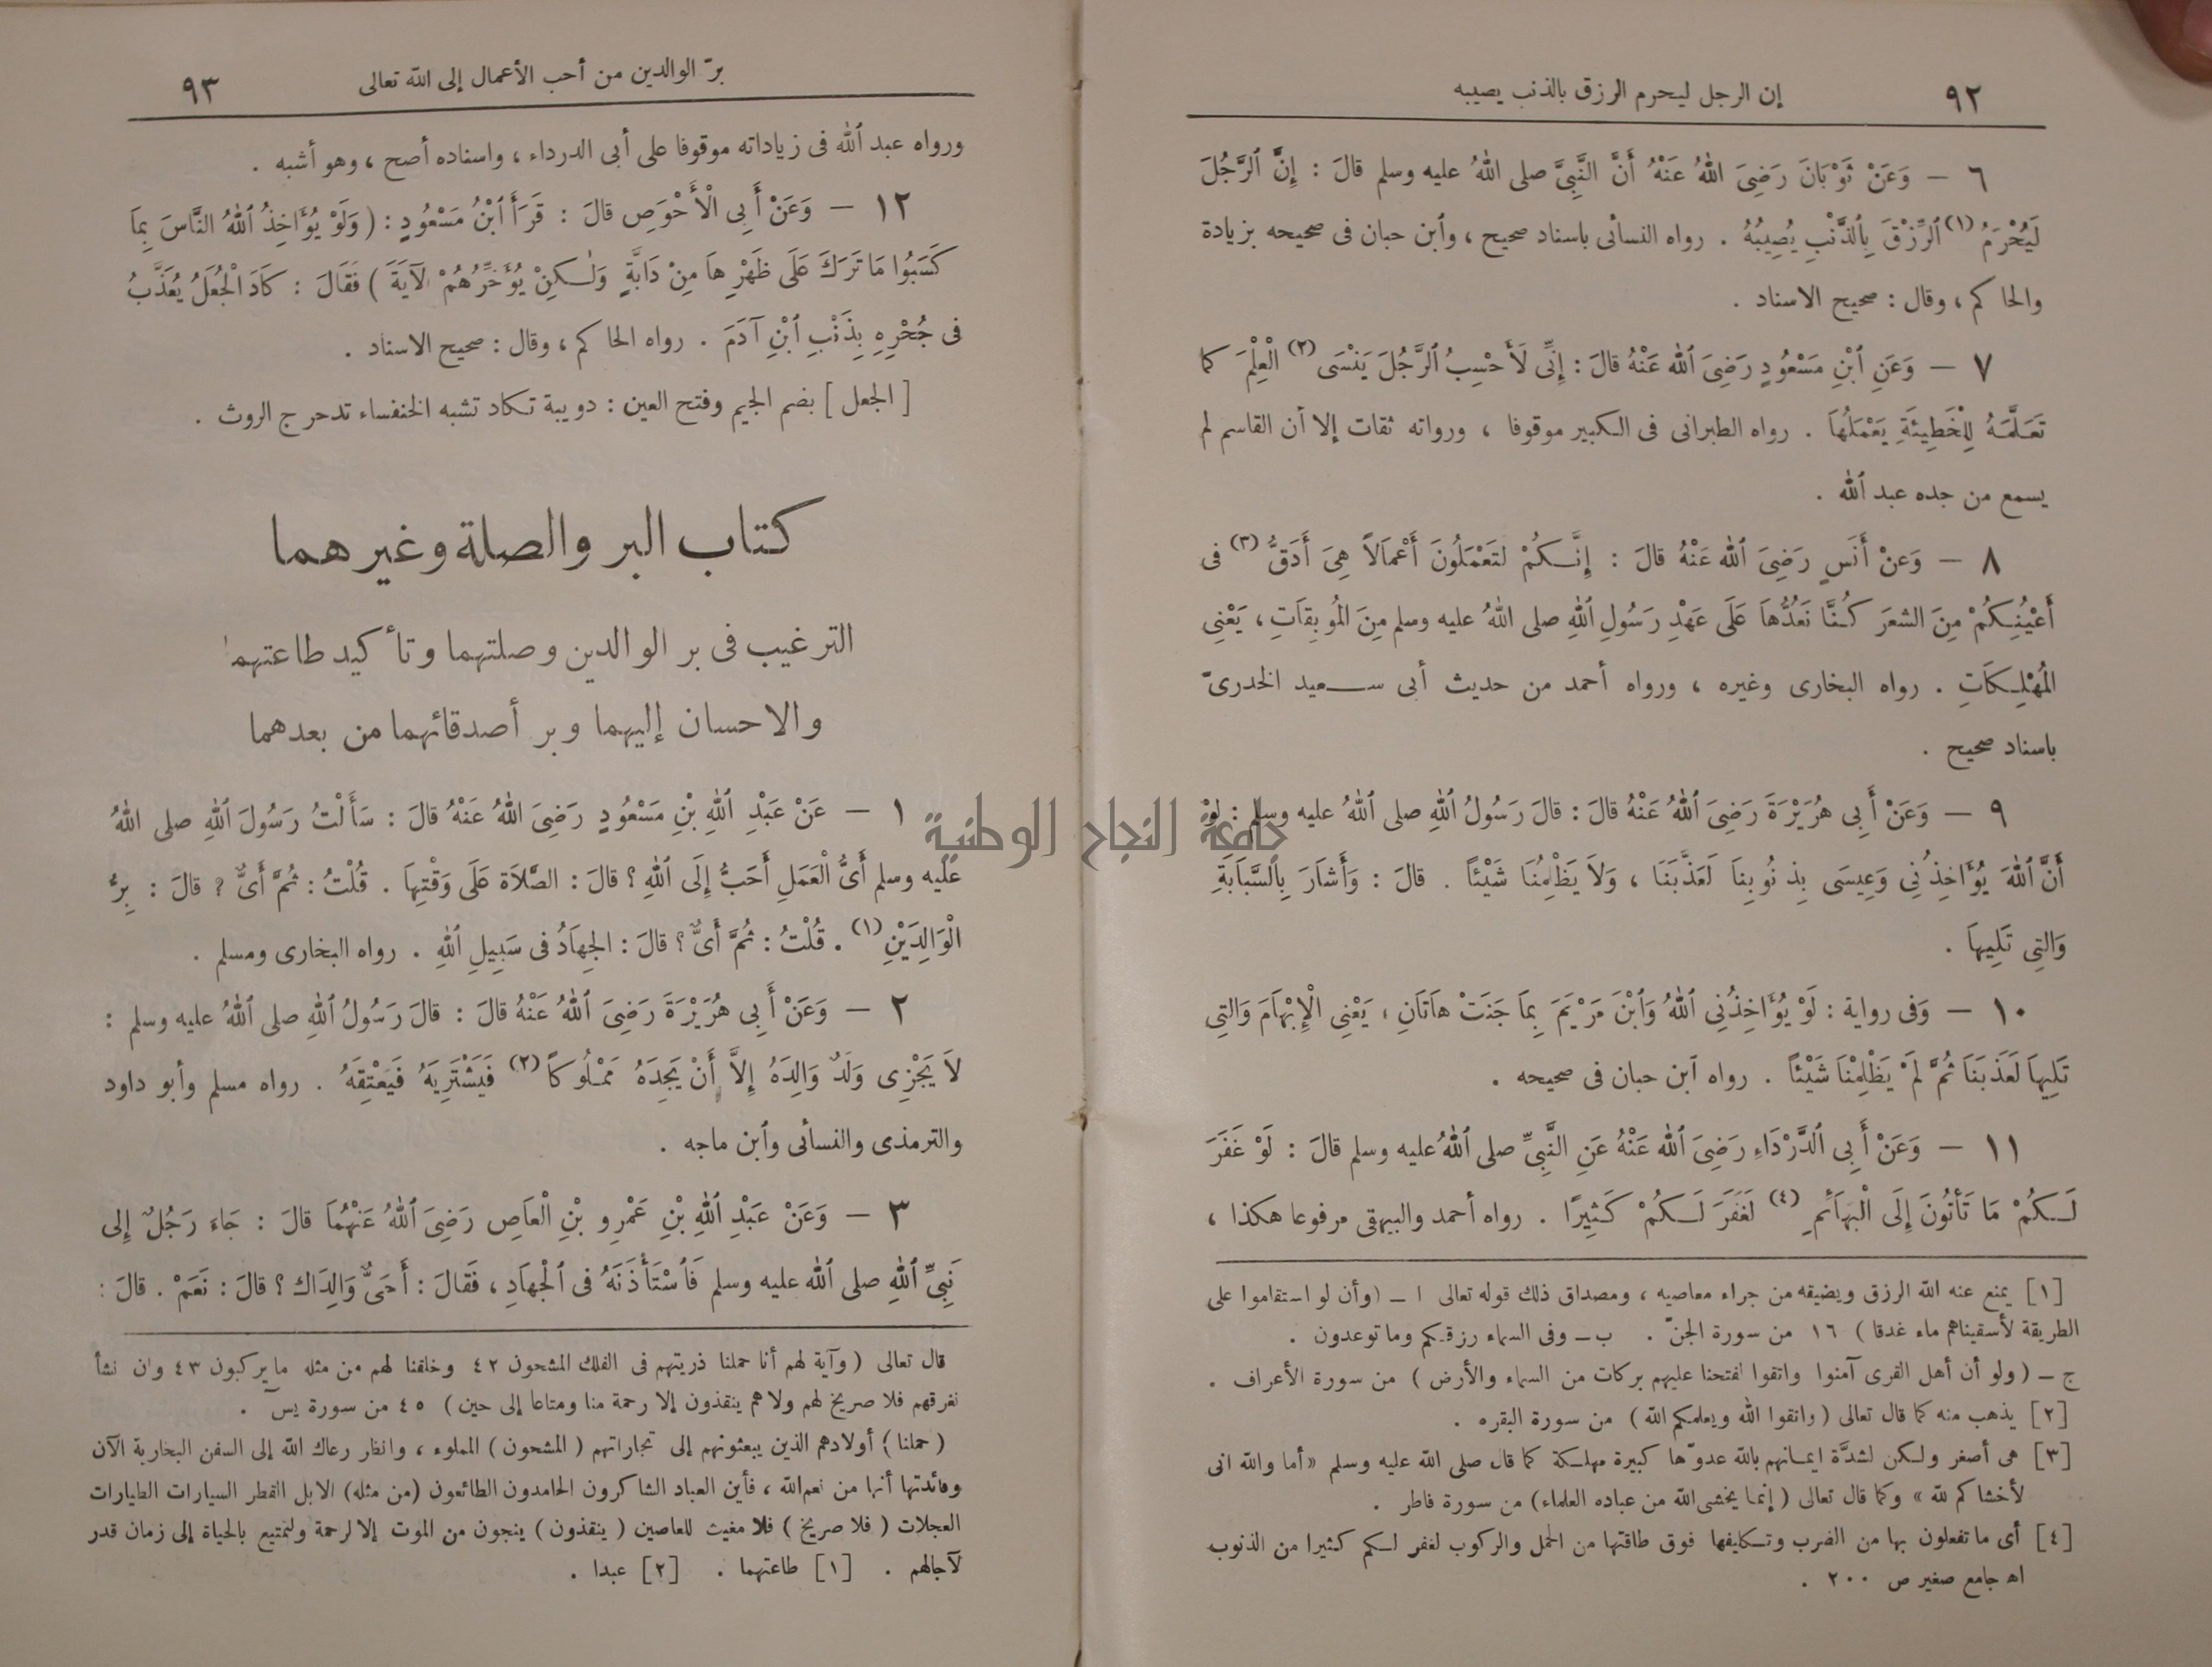 ٩٢ إن الرجل ليحرم الرزق بالذنب يصيبه
٦ — وَعَنْ ثَوْبَانَ رَضِىَ اللهُ عَنْهُ أَنَّ النَّبِىَّ صلى اللهُ عليه وسلم قالَ : إِنَّ الرَّجُلَ
لَيُحْرَمُ (١) الرِّزْقَ بِالذَّنْبِ يُصِيبُهُ . رواه النسائى باسناد صحيح ، وابن حبان فى صحيحه بزيادة
والحاكم ، وقال : صحيح الاسناد .
٧ — وَعَنِ ابْنِ مَسْعُودٍ رَضِىَ الله عَنْهُ قالَ : إِنِّى لَأَحْسِبُ الرَّجُلَ يَنْسَى (٢) الْعِلْمَ كما
تَعَلَّمَهُ لِلْخَطِيئَةِ يَعْمَلُهَا . رواه الطبرانى فى الكبير موقوفا ، ورواته ثقات إلا أن القاسم لم
يسمع من جده عبد الله .
٨ — وَعَنْ أَنَسٍ رَضِىَ الله عَنْهُ قالَ : إِنَّكُمْ لتَعْمَلُونَ أَعْمَالاً هِىَ أَدَقُّ (٣) فى
أَعْيُنِكُمْ مِنَ الشعَرَ كُنَّا نَعُدُّهَا عَلَى عَهْدِ رَسُولِ اللهِ صلى اللهُ عليه وسلم مِنَ المُوبِقَاتِ ، يَعْنِى
المُهْلِكَاتِ . رواه البخارى وغيره ، ورواه أحمد من حديث أبى سعيد الخدرىّ
باسناد صحيح .
٩ — وَعَنْ أَبِى هُرَيْرَةَ رَضِىَ اللهُ عَنْهُ قالَ : قالَ رَسُولُ اللهِ صلى اللهُ عليه وسلم : لَوْ
أَنَّ اللهَ يُؤَاخِذُنِى وَعِيسَى بِذنُوبِنَا لَعَذَّبَنَا ، وَلاَ يَظْلِمُنَا شَيْئاً . قالَ : وَأَشَارَ بِالسَّبَابَةِ
وَالتِى تَلِيهَا .
١٠ — وَفى رواية : لَوْ يُؤَاخِذُنِى اللهُ وَابْنَ مَرْيَمَ بِمَا جَنَتْ هَاتَانِ ، يَعْنِى الْإِبْهَامَ وَالتِى
تَلِيهَا لَعَذَبَنَا ثُمَّ لَمْ يَظْلِمْنَا شَيْئاً . رواه ابن حبان فى صحيحه .
١١ — وَعَنْ أَبِى الدَّرْدَاءِ رَضِىَ الله عَنْهُ عَنِ النَّبِىِّ صلى اللهُ عليه وسلم قالَ : لَوْ غَفَرَ
لَكُمْ مَا تَأْتُونَ إِلَى الْبَهَائِمِ (٤) لَغَفَرَ لَكُمْ كَثِيرًا . رواه أحمد والبيهقى مرفوعا هكذا ،
[١] يمنع عنه الله الرزق ويضيقه من جراء معاصيه ، ومصداق ذلك قوله تعالى ا ـ (وأن لو استقاموا على
الطريقة لأسقيناهم ماء غدقا ) ١٦ من سورة الجنّ . ب ـ وفى السماء رزقكم وما توعدون .
ج ـ ( ولو أن أهل القرى آمنوا واتقوا لفتحنا عليهم بركات من السماء والأرض ) من سورة الأعراف .
[٢] يذهب منه كما قال تعالى ( واتقوا الله ويعلمكم الله ) من سورة البقره .
[٣] هى أصغر ولكن لشدَّة ايمانهم بالله عدوّها كبيرة مهلكة كما قال صلى الله عليه وسلم «أما والله انى
لأخشاكم لله » وكما قال تعالى ( إنما يخشى الله من عباده العلماء) من سورة فاطر .
[٤] أى ما تفعلون بها من الضرب وتكليفها فوق طاقتها من الحمل والركوب لغفر لكم كثيرا من الذنوب
اه جامع صغير ص ٢٠٠ .
برّ الوالدين من أحب الأعمال إلى الله تعالى ٩٣
ورواه عبد الله فى زياداته موقوفا على أبى الدرداء ، واسناده أصح ، وهو أشبه .
١٢ — وَعَنْ أَبِى الْأَحْوَصِ قالَ : قَرَأَ ابْنُ مَسْعُودٍ : ( وَلَوْ يُؤَاخِذُ اللهُ النَّاسَ بِمَا
كَسَبُوا مَا تَرَكَ عَلَى ظَهْرِهَا مِنْ دَابَّةٍ وَلٰكِنْ يُؤَخِّرُهُمْ الآيَةَ ) فَقَالَ : كَادَ الْجُعَلُ يُعَذَّبُ
فى جُحْرِهِ بِذَنْبِ ابْنِ آدَمَ . رواه الحاكم ، وقال : صحيح الاسناد .
[ الجعل ] بضم الجيم وفتح العين : دويبة تكاد تشبه الخنفساء تدحرج الروث .
كتاب البر والصلة وغيرهما
الترغيب فى بر الوالدين وصلتهما وتأكيد طاعتهما
والاحسان إليهما وبر أصدقائهما من بعدهما
١ — عَنْ عَبْدِ اللهِ بْنِ مَسْعُودٍ رَضِىَ اللهُ عَنْهُ قالَ : سَأَلْتُ رَسُولَ اللهِ صلى اللهُ
عليه وسلم أَىُّ الْعَمَلِ أَحَبُّ إِلَى اللهِ ؟ قالَ : الصَّلاَة عَلَى وَقْتِهَا . قُلْتُ : ثُمَّ أَىٌّ ؟ قالَ : بِرُّ
الْوَالِدَيْنِ (١) . قُلْتُ : ثُمَّ أَىٌّ ؟ قالَ : الجِهَادُ فى سَبِيلِ اللهِ . رواه البخارى ومسلم .
٢ — وَعَنْ أَبِى هُرَيْرَةَ رَضِىَ اللهُ عَنْهُ قالَ : قالَ رَسُولُ اللهِ صلى اللهُ عليه وسلم :
لاَ يَجْزِى وَلَدٌ وَالِدَهُ إِلاَّ أَنْ يَجِدَهُ مَمْلُوكاً (٢) فَيَشْتَرِيَهُ فَيَعْتِقَهُ . رواه مسلم وأبو داود
والترمذى والنسائى وابن ماجه .
٣ — وَعَنْ عَبْدِ اللهِ بْنِ عَمْرِو بْنِ الْعَاصِ رَضِىَ اللهُ عَنْهُمَا قالَ : جَاءَ رَجُلٌ إِلى
نَبِىِّ اللهِ صلى الله عليه وسلم فَاسْتَأْذَنَهُ فى الْجِهَادِ ، فَقَالَ : أَحَىٌّ وَالِدَاك ؟ قالَ : نَعَمْ . قالَ :
قال تعالى ( وآية لهم أنا حملنا ذريتهم فى الفلك المشحون ٤٢ وخلقنا لهم من مثله ما يركبون ٤٣ وان نشأ
نغرقهم فلا صريخ لهم ولا هم ينقذون إلا رحمة منا ومتاعا إلى حين ) ٤٥ من سورة يس .
( حملنا ) أولادهم الذين يبعثونهم إلى تجاراتهم ( المشحون ) المملوء ، وانظر رعاك الله إلى السفن البخارية الآن
وفائدتها أنها من نعم الله ، فأين العباد الشاكرون الحامدون الطائعون (من مثله) الابل القطر السيارات الطيارات
العجلات ( فلا صريخ ) فلا مغيث للعاصين ( ينقذون ) ينجون من الموت إلا لرحمة ولتمتيع بالحياة إلى زمان قدر
لآجالهم . [١] طاعتهما . [٢] عبدا .
جامعة النجاح الوطنية